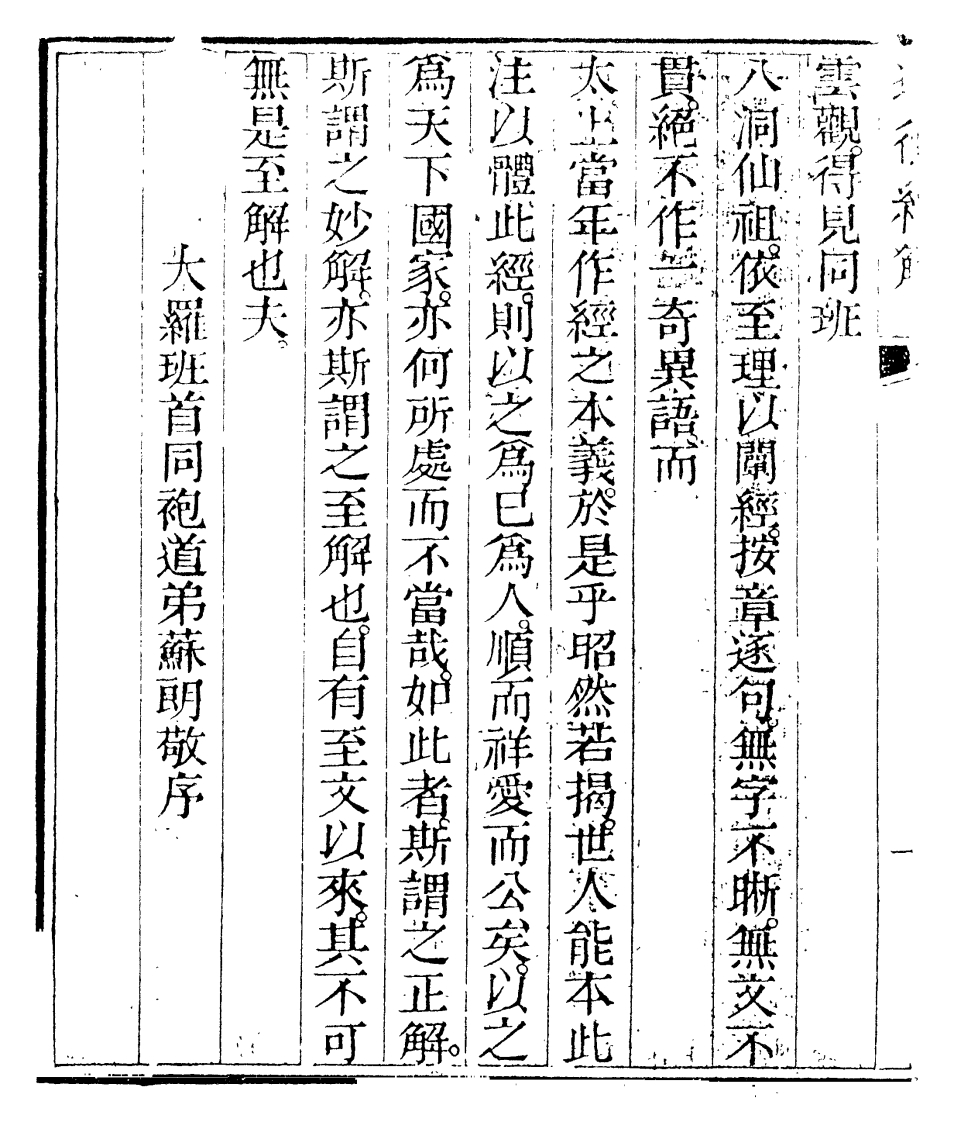 雲觀。得見同班
八洞仙祖。依至理以闡經。按章逐句。無字不晰。無文不
貫。絕不作一奇異語。而
太上當年作經之本義。於是乎昭然若揭。世人能本此
注以體此經。則以之爲已爲人。順而祥愛而公矣。以之
爲天下國家。亦何所處而不當哉。如此者。斯謂之正解。
斯謂之妙解。亦斯謂之至解也。自有至文以來。其不可
無是至解也夫。
大羅班首同袍道弟蘇朗敬序